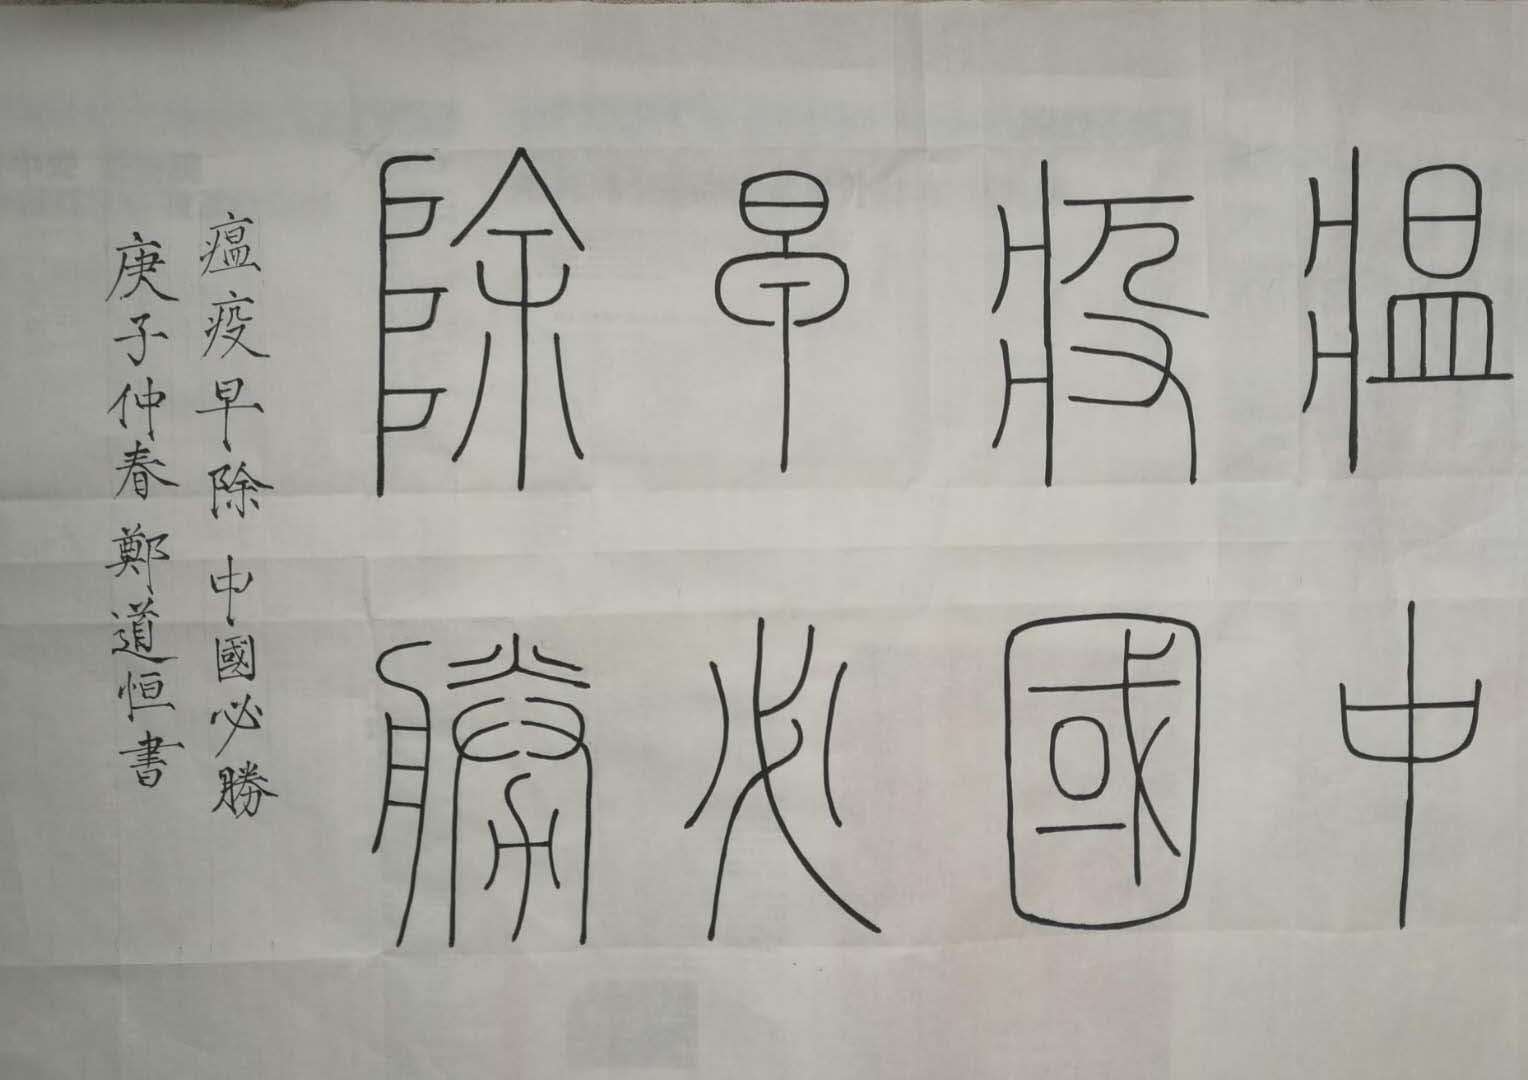 瘟疫早除
中國必勝
瘟疫早除 中國必勝
庚子仲春 鄭道恒書